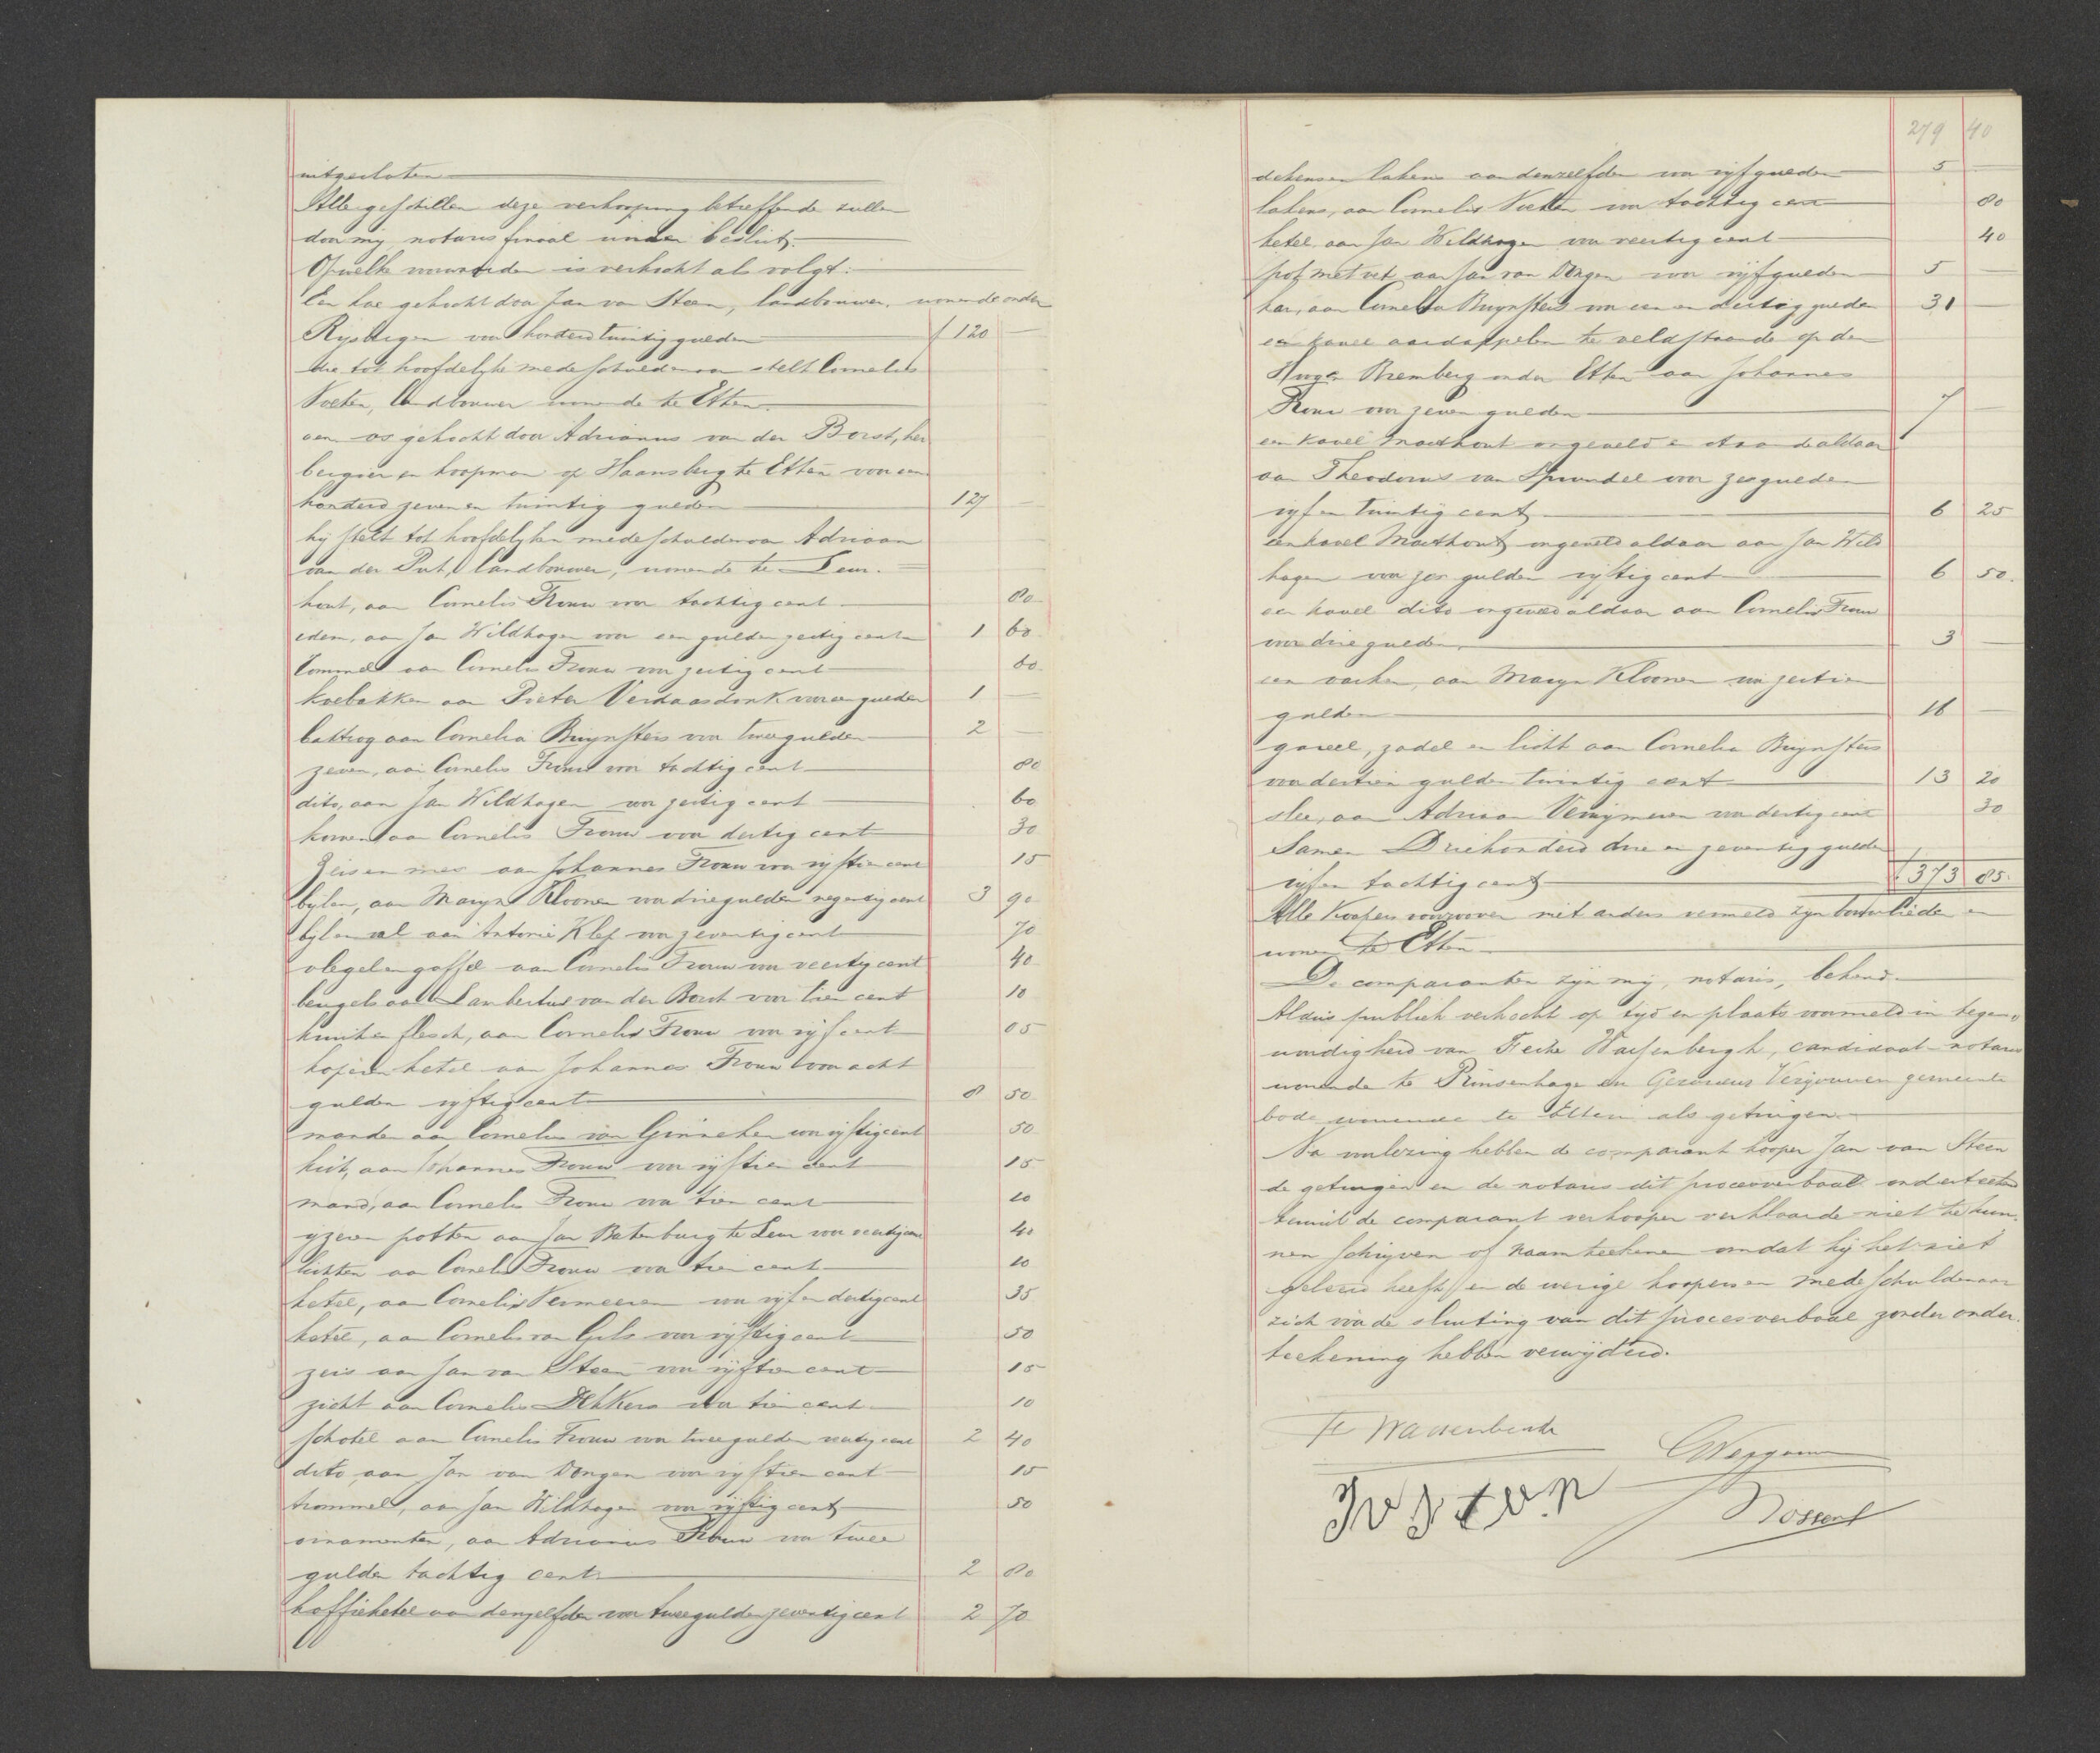 uitgesloten
Alle geschillen deze verkooping betreffende zullen
door mij notaris finaal worden beslist.
Op welke voorwaarden is verkocht als volgt:
Een koe gekocht door Jan van Steen, landbouwer, wonende onder
Rijsbergen voor honderd twintig gulden f 120 —
die tot hoofdelijke medeschuldenaar stelt Cornelis
Voeten, landbouwer wonende te Etten.
een os gekocht door Adrianus van der Borst, her
bergier en koopman op Haansberg te Etten voor een
honderd zeven en twintig gulden 127 —
hij stelt tot hoofdelijken medeschuldenaar Adriaan
van der Put, landbouwer, wonende te Leur.
hout, aan Cornelis Trouw voor tachtig cent 80
idem, aan Jan Wildhagen voor een gulden zestig cent 1 60
aan Cornelis Trouw voor zestig cent 60
koebakken aan Pieter Verdaasdonk voor een gulden 1 —
baktrog aan Cornelia Buijnsters voor twee gulden 2 —
zeven, aan Cornelis Trouw voor tachtig cent 80
dito, aan Jan Wildhagen voor zestig cent 60
aan Cornelis Trouw voor dertig cent 30
Zeis en mes aan Johannes Trouw voor vijftien cent 15
bijlen, aan Maryn Kloonen voor drie gulden negentig cent 3 90
bijl en aan Antonie Klep voor zeventig cent 70
vlegel en gaffel aan Cornelis Trouw voor veertig cent 40
beugels aan Lambertus van der Borst voor tien cent 10
kruik en flesch, aan Cornelis Trouw voor vijf cent 05
koperen ketel aan Johannes Trouw voor acht
gulden vijftig cent 8 50
manden aan Cornelis van Ginneken voor vijftig cent 50
kist, aan Johannes Trouw voor vijftien cent 15
mand, aan Cornelis Trouw voor tien cent 10
ijzeren potten aan Jan Batenburg te Leur voor veertig cent 40
lichten aan Cornelis Trouw voor tien cent 10
ketel, aan Cornelis Vermeeren voor vijf en dertig cent 35
ketel, aan Cornelis van Gils voor vijftig cent 50
zeis aan Jan van Steen voor vijftien cent 15
zicht aan Cornelis Dekkers voor tien cent 10
schotel aan Cornelis Trouw voor twee gulden veertig cent 2 40
dito aan Jan van Dongen voor vijftien cent 15
trommel, aan Jan Wildhagen voor vijftig cent 50
ornamenten, aan Adrianus Trouw voor twee
gulden tachtig cent 2 80
koffieketel aan denzelfden voor twee gulden zeventig cent 2 70
279 40
dekens en lakens aan denzelfden voor vijf gulden 5 —
lakens, aan Cornelis Voeten voor tachtig cent 80
ketel aan Jan Wildhagen voor veertig cent 40
pot met vet aan Jan van Dongen voor vijf gulden 5 —
kar, aan Cornelia Buijnsters voor een en dertig gulden 31 —
een kavel aardappelen te veld staande op den
Hoogen Bremberg onder Etten aan Johannes
Trouw voor zeven gulden 7 —
een kavel masthout ongeveld en staande aldaar
aan Theodorus van Sprundel voor zes gulden
vijf en twintig cent 6 25
een kavel Masthout ongeveld aldaar aan Jan Wild
hagen voor zes gulden vijftig cent 6 50
een kavel dito ongeveld aldaar aan Cornelis Trouw
voor drie gulden. 3 —
een varken, aan Maryn Kloonen voor zestien
gulden 16 —
gareel, zadel en licht aan Cornelia Buijnsters
voor dertien gulden twintig cent 13 20
slee, aan Adriaan voor dertig cent 30
Samen Driehonderd drie en zeventig gulden
vijf en tachtig cent f 373 85
Alle Koopers voorzoover niet anders vermeld zijn bouwlieden en
wonen te Etten
De comparanten zijn mij, notaris, bekend
Aldus publiek verkocht op tijd en plaats voormeld in tegen-
woordigheid van Feike Wassenbergh, candidaat-notaris
wonende te Prinsenhage en Gerardus Vergouwen gemeente
bode wonende te Etten als getuigen.
Na voorlezing hebben de comparant kooper Jan van Steen
de getuigen en de notaris dit procesverbaal onderteekend
terwijl de comparant verkooper verklaarde niet te kun-
nen schrijven of naamteekenen omdat hij het niet
geleerd heeft en de overige koopers en mede schuldenaar
zich vóór de sluiting van dit procesverbaal zonder onder-
teekening hebben verwijderd.
Fe Wassenbergh
GVergouwen
JV Steen